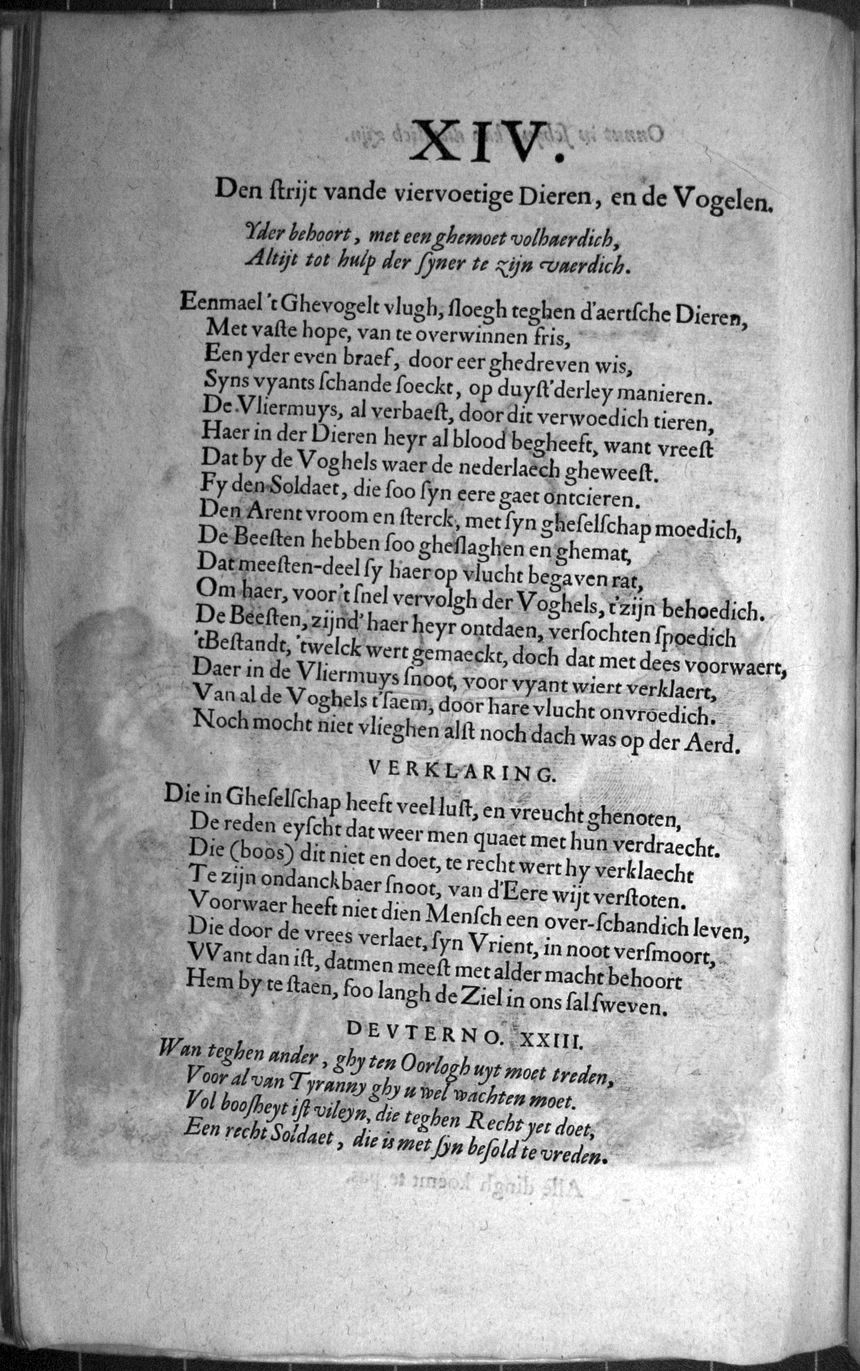 XIV.
Den ſtrijt vande viervoetige Dieren, en de Vogelen.
Yder behoort, met een ghemoet volhaerdich,
Altijt tot hulp der ſyner te zijn vaerdich.
Eenmael 't Ghevogelt vlugh, ſloegh teghen d'aertſche Dieren,
Met vaſte hope, van te overwinnen fris,
Een yder even braef, door eer ghedreven wis,
Syns vyants ſchande ſoeckt, op duyſt'derley manieren.
De Vliermuys, al verbaeſt, door dit verwoedich tieren,
Haer in der Dieren heyr al blood begheeft, want vreeſt
Dat by de Voghels waer de nederlaech gheweeſt.
Fy den Soldaet, die ſoo ſyn eere gaet ontcieren.
Den Arent vroom en ſterck, met ſyn gheſelſchap moedich,
De Beeſten hebben ſoo gheſlaghen en ghemat,
Dat meeſten-deel ſy haer op vlucht begaven rat,
Om haer, voor 't ſnel vervolgh der Voghels, t'zijn behoedich.
De Beeſten, zijnd' haer heyr ontdaen, verſochten ſpoedich
'tBeſtandt, 'twelck wert gemaeckt, doch dat met dees voorwaert,
Daer in de Vliermuys ſnoot, voor vyant wiert verklaert,
Van al de Voghels t'ſaem, door hare vlucht onvroedich.
Noch mocht niet vlieghen alſt noch dach was op der Aerd.
VERKLARING.
Die in Gheſelſchap heeft veel luſt, en vreucht ghenoten,
De reden eyſcht dat weer men quaet met hun verdraecht.
Die (boos) dit niet en doet, te recht wert hy verklaecht
Te zijn ondanckbaer ſnoot, van d'Eere wijt verſtoten.
Voorwaer heeft niet dien Menſch een over-ſchandich leven,
Die door de vrees verlaet, ſyn Vrient, in noot verſmoort,
VVant dan iſt, datmen meeſt met alder macht behoort
Hem by te ſtaen, ſoo langh de Ziel in ons ſal ſweven.
DEVTERNO. XXIII.
Wan teghen ander, ghy ten Oorlogh uyt moet treden,
Voor al van Tyranny ghy u wel wachten moet.
Vol booſheyt iſt vileyn, die teghen Recht yet doet,
Een recht Soldaet, die is met ſyn beſold te vreden.